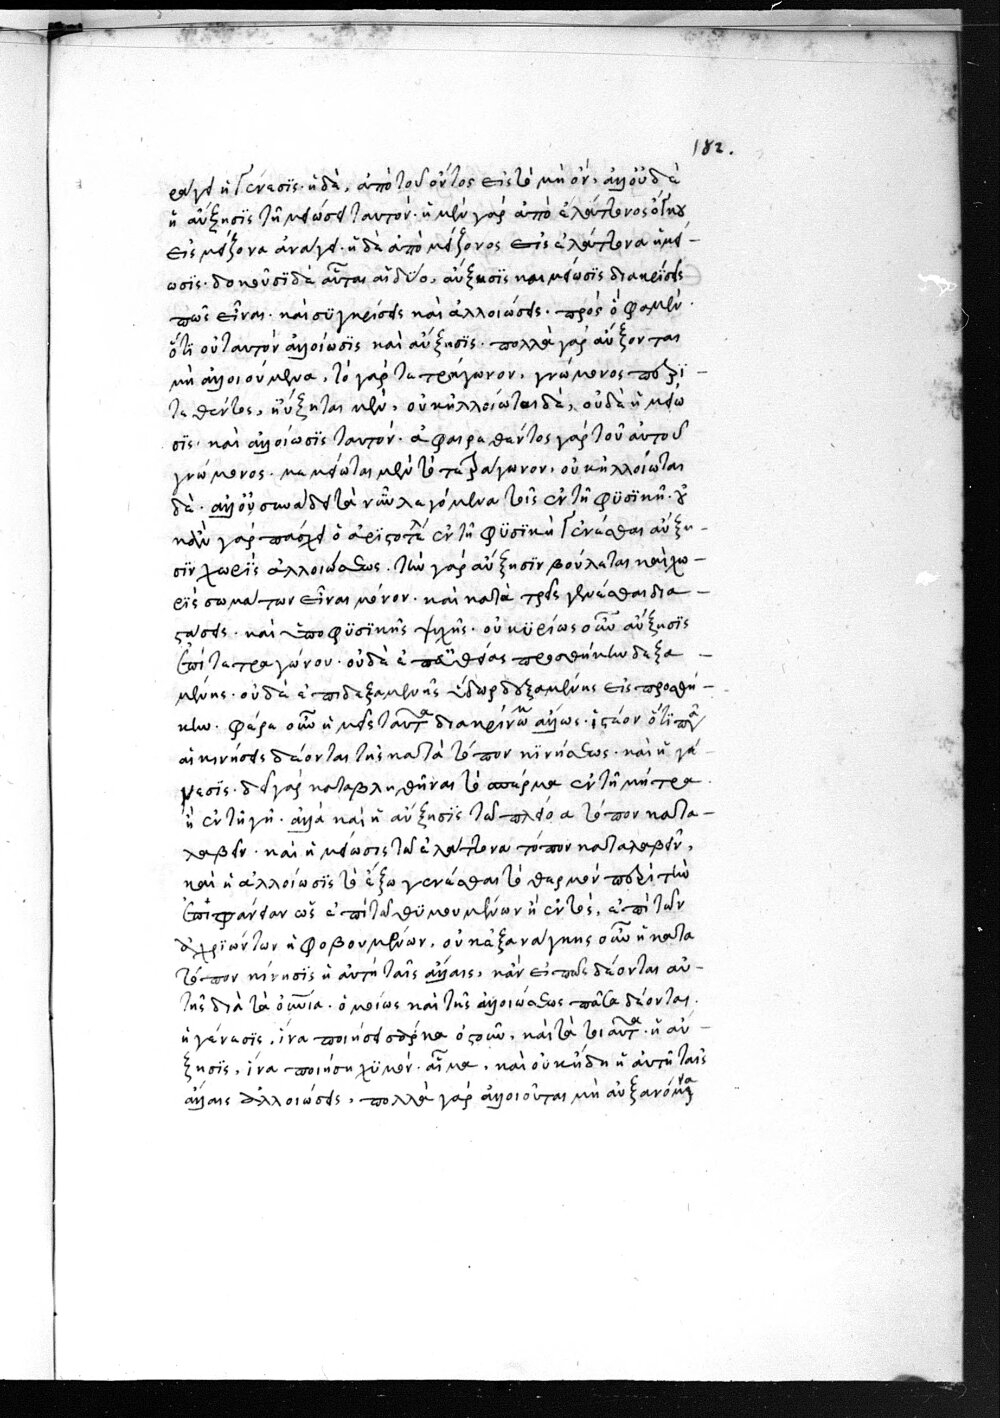 182.
ράγει ἡ γένεσις· ἡ δὲ, ἀπὸ τοῦ ὄντος εἰς τὸ μὴ ὄν· ἀλλ' οὐδὲ
ἡ αὔξησις τῇ μειώσει ταυτόν· ἡ μὲν γὰρ ἀπὸ ἐλάττονος ὄγκου
εἰς μείζονα ἀνάγει· ἡ δὲ ἀπὸ μείζονος εἰς ἐλάττονα ἡ μεί-
ωσις· δοκοῦσι δὲ αὗται αἱ δύο, αὔξησις καὶ μείωσις διακρίσεις
πως εἶναι· καὶ συγκρίσεις καὶ ἀλλοιώσεις· πρὸς ὅ φαμεν·
ὅτι οὐ ταυτὸν ἀλλοίωσις καὶ αὔξησις· πολλὰ γὰρ αὔξονται
μὴ ἀλλοιούμενα, τὸ γὰρ τετράγωνον, γνώμονος περι-
τεθέντος, ηὔξηται μὲν, οὐκ ἠλλοίωται δὲ, οὐδὲ ἡ μείω
σις· καὶ ἀλλοίωσις ταυτόν· ἀφαιρεθέντος γὰρ τοῦ αὐτοῦ
γνώμονος· μεμείωται μὲν τὸ τετράγωνον, οὐκ ἠλλοίωται
δέ· ἀλλ' οὐ συνάδει τὰ νῦν λεγόμενα τοῖς ἐν τῇ φυσικῇ· οὐ
γὰρ πάσχει ὁ ἀριστοτέλης ἐν τῇ φυσικῇ γενέσθαι αὔξη-
σιν χωρὶς ἀλλοιώσεως· τὴν γὰρ αὔξησιν βούλεται καὶ χω-
ρὶς σωμάτων εἶναι μόνον· καὶ κατὰ τρεῖς γενέσθαι δια-
στάσεις· καὶ ὑπὸ φυσικῆς ψυχῆς· οὐ κυρίως οὖν αὔξησις
ἐπὶ τετραγώνου· οὐδὲ ἐπὶ θείας προσθήκην δεξα-
μένης· οὐδὲ ἐπὶ δεξαμενῆς ὕδωρ δεξαμένης εἰς προσθή-
κην· φέρε οὖν ἡμεῖς ταῦτα διακρίνωμεν ἄλλως· ἰστέον ὅτι πᾶσαι
αἱ κινήσεις δέονται τῆς κατὰ τόπον κινήσεως· καὶ ἡ γέ-
νεσις· δεῖ γὰρ καταβληθῆναι τὸ σπέρμα ἐν τῇ μήτρᾳ
ἢ ἐν τῇ γῇ· ἀλλὰ καὶ ἡ αὔξησις τῷ πλείονα τόπον κατα-
λαβεῖν· καὶ ἡ μείωσις τῷ ἐλάττονα τόπον καταλαβεῖν,
καὶ ἡ ἀλλοίωσις τὸ ἔξω γενέσθαι τὸ θερμὸν περὶ τὴν
ἐπιφάνειαν ὡς ἐπὶ τῶν θυμουμένων ἢ ἐντὸς, ἐπὶ τῶν
ὠχριώντων ἢ φοβουμένων, οὐκ ἐξ ἀνάγκης οὖν ἡ κατὰ
τόπον κίνησις ἡ αὐτὴ ταῖς ἄλλαις, κἂν εἴ πως δέονται αὐ-
τῆς διὰ τὰ ὁμοῖα· ὁμοίως καὶ τῆς ἀλλοιώσεως πᾶσαι δέονται·
ἡ γένεσις, ἵνα ποιήσει σάρκα ὀστοῦν, καὶ τὰ τοιαῦτα· ἡ αὔ-
ξησις, ἵνα ποιήσῃ χυμὸν· αἷμα, καὶ οὐκ ἤδη ἡ αὐτὴ ταῖς
ἄλλαις ἀλλοιώσεις, πολλὰ γὰρ ἀλλοιοῦται μὴ αὐξανόμενα